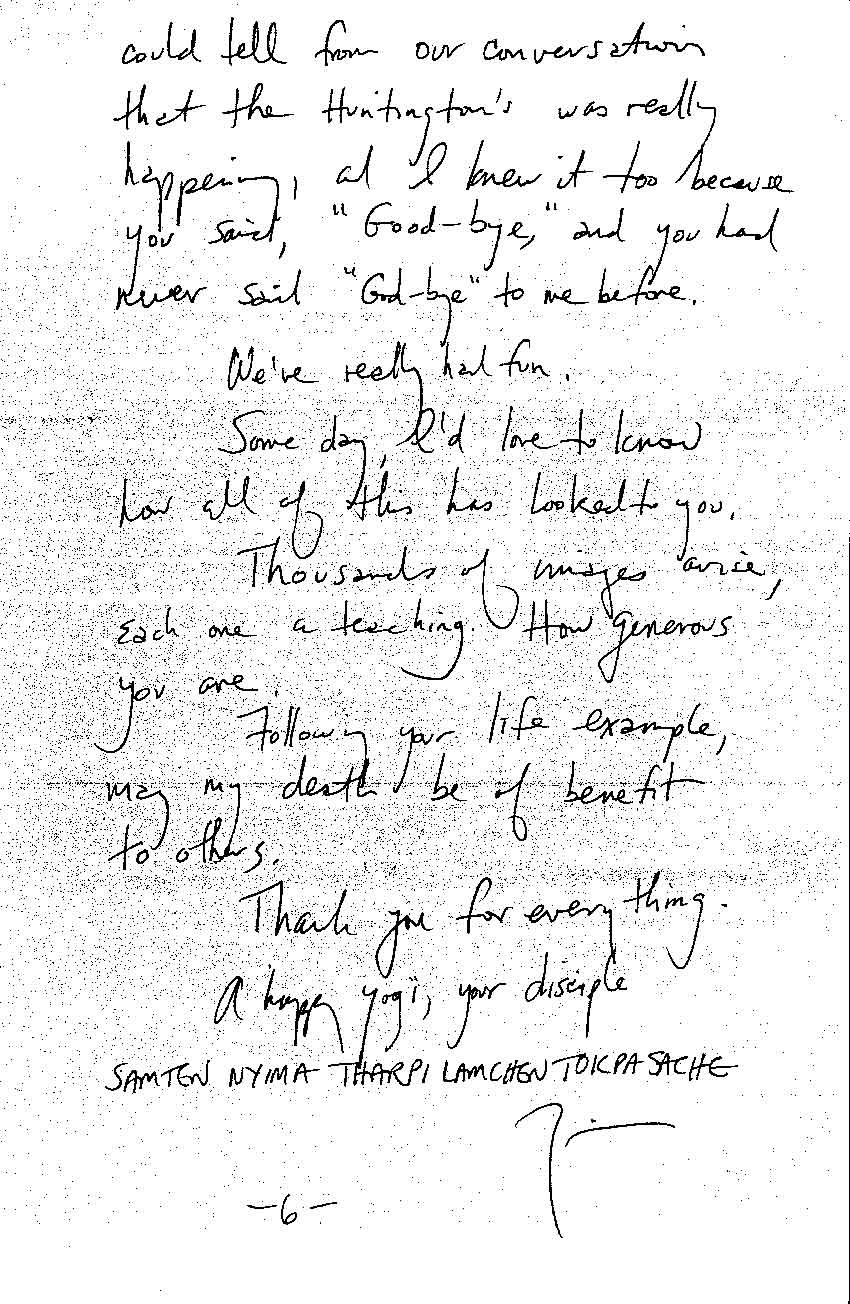 could tell from our conversation
that the Huntington's was really
happening, ad I knew it too because
you said, "Good-bye," and you had
never said "God-bye" to me before.
We've really had fun.
Some day, I'd love to know
how all of this has looked to you.
Thousands of images arise,
Each one a teaching. How generous
you are.
Following your life example,
may my death be of benefit
to others.
Thank you for everything.
A happy yogi, your disciple
SAMTEN NYIMA THARPI LAMCHEN TOKPA SACHE
-6-